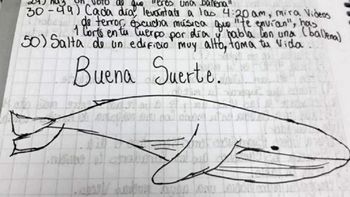 29) haz un voto de que "eres una ballena".
30-49) Cada día, levántate a las 4:20am, mira videos
de terror, escucha música que "te envían", haz
1 corte en tu cuerpo por día, y habla con una (ballena)
50) Salta de un edificio muy alto, toma tu vida.
Buena Suerte.